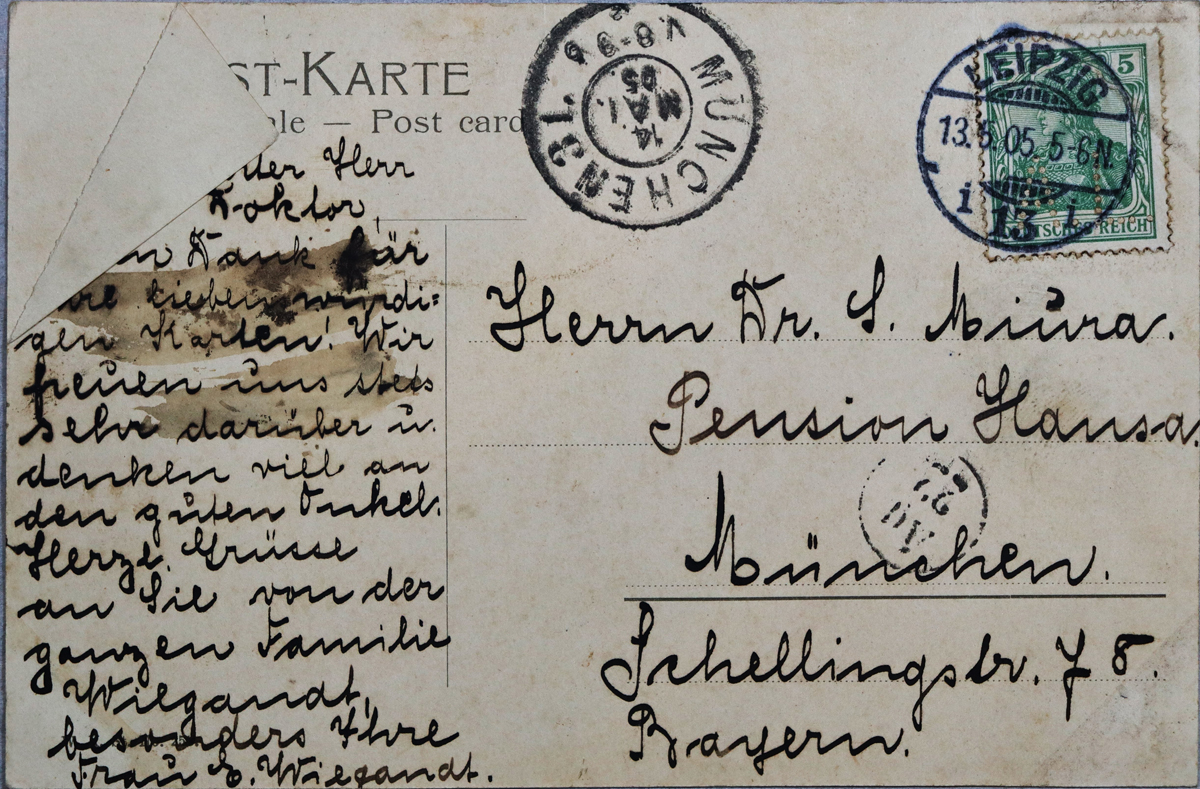 ST-KARTE
ale — Post card
rter Herr
Doktor,
n Dank für
liebenswürdi=
gen Karten! Wir
freuen uns stets
sehr darüber u.
denken viel an
den guten Onkel.
Herzl. Grüsse
an Sie von der
ganzen Familie
Wiegandt,
besonders Ihre
Frau E. Wiegandt.
MÜNCHEN 31.
14.
MAI.
05
V 8-9
LEIPZIG
13.5.05.5-6N.
13
5
REICH
Herrn Dr. S. Miura.
Pension Hansa
München.
Schellingstr. 78.
Bayern.